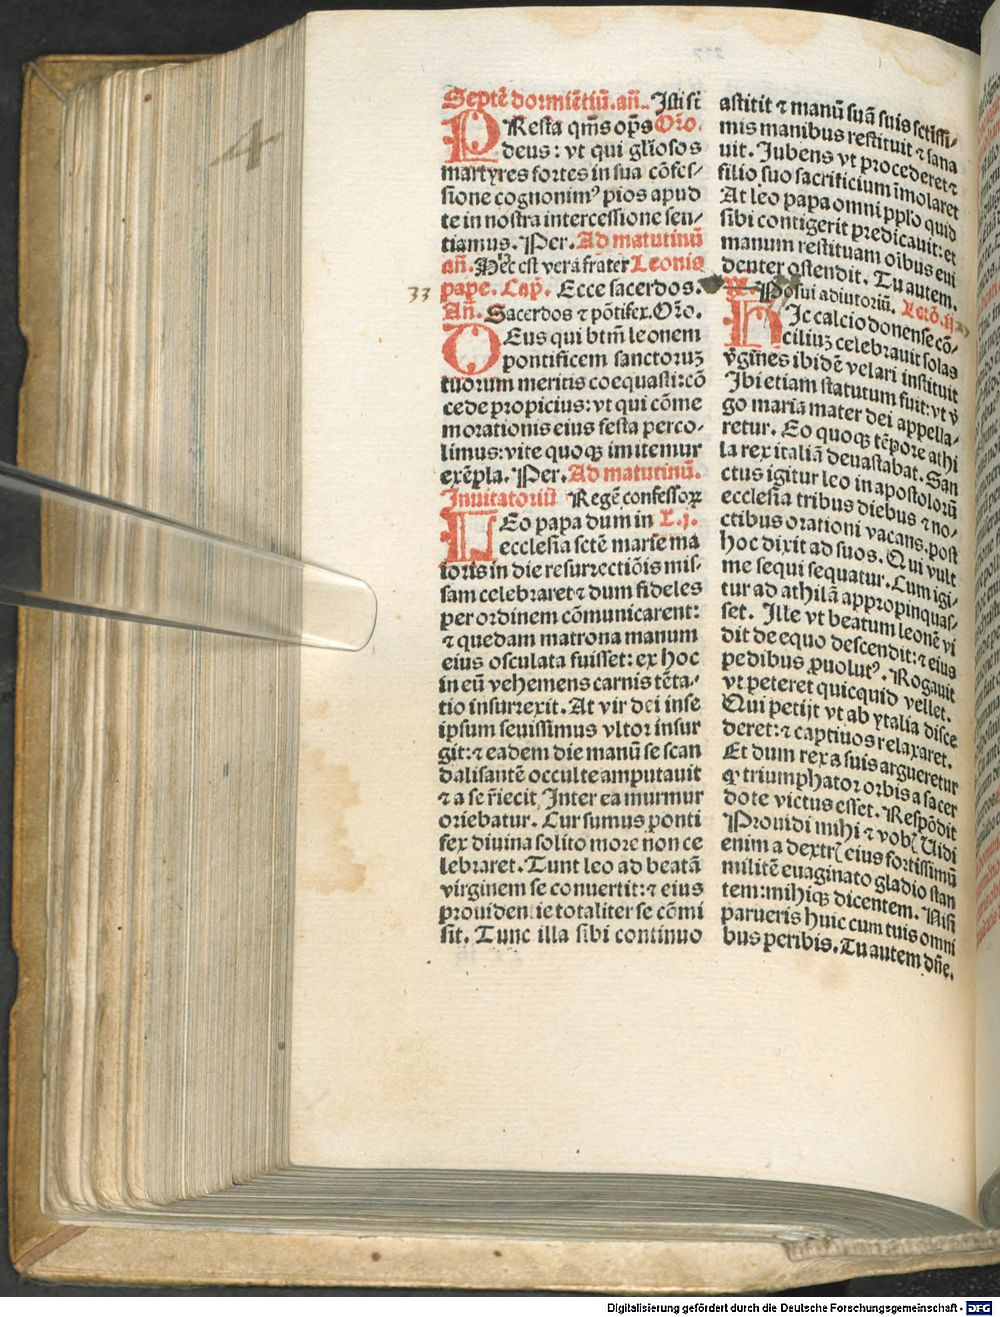 4
Septē dormiētiū. añ. Isti sē
PResta q̄ms op̄s Oro.
deus: vt qui gl̄iosos
martyres fortes in sua cōfes-
sione cognonimꝰ pios apud
te in nostra intercessione sen-
tiamus. Per. Ad matutinū
añ. Hec est vera frater Leonis
33 pape. Cap̄. Ecce sacerdos.
Añ. Sacerdos ⁊ pōtifex. Oro.
DEus qui btm̄ leonem
pontificem sanctoruꝫ
tuorum meritis coequasti: cō
cede propicius: vt qui cōme
morationis eius festa perco-
limus: vite quoqꝫ imitemur
exēpla. Per. Ad matutinū.
Inuitatoriū Regē confessoꝝ
LEo papa dum in L.j.
ecclesia sctē marie ma
ioris in die resurrectiōis mis-
sam celebraret ⁊ dum fideles
per ordinem cōmunicarent:
⁊ quedam matrona manum
eius osculata fuisset: ex hoc
in eū vehemens carnis tēta-
tio insurrexit. At vir dei in se
ipsum seuissimus vltor insur
git: ⁊ eadem die manū se scan
dalisantē occulte amputauit
⁊ a se r̄iecit Inter ea murmur
oriebatur. Cur sumus ponti
fex diuina solito more non ce
lebraret. Tunt leo ad beatā
virginem se conuertit: ⁊ eius
prouidentie totaliter se cōmi
sit. Tunc illa sibi continuo
astitit ⁊ manū suā suis sctissi-
mis manibus restituit ⁊ sana
uit. Jubens vt procederet ⁊
filio suo sacrificium īmolaret
At leo papa omni pplo quid
sibi contigerit predicauit: et
manum restituam oībus eui
denter ostendit. Tu autem.
℟. Posui adiutoriū. Lectō.ij
HIc calcio donense cō-
ciliuꝫ celebrauit solas
v̄gines ibidē velari instituit
Ibi etiam statutum fuit: vt v̄
go maria mater dei appella-
retur. Eo quoqꝫ tēpore athi
la rex italiā deuastabat. San
ctus igitur leo in apostolorū
ecclesia tribus diebus ⁊ no-
ctibus orationi vacans. post
hoc dixit ad suos. Qui vult
me sequi sequatur. Cum igi-
tur ad athilā appropinquas-
set. Ille vt beatum leonē vi
dit de equo descendit: ⁊ eius
pedibus ꝓuolutꝰ. Rogauit
vt peteret quicquid vellet.
Qui petijt vt ab ytalia disce
deret: ⁊ captiuos relaxaret.
Et dum rex a suis argueretur
ꝙ triumphator orbis a sacer
dote victus esset. Respōdit
Prouidi mihi ⁊ vobꝭ Uidi
enim a dextrꝭ eius fortissimū
militē euaginato gladio stan
tem: mihiqꝫ dicentem. Nisi
parueris huic cum tuis omni
bus peribis. Tu autem dn̄e.
Digitalisierung gefördert durch die Deutsche Forschungsgemeinschaft - DFG